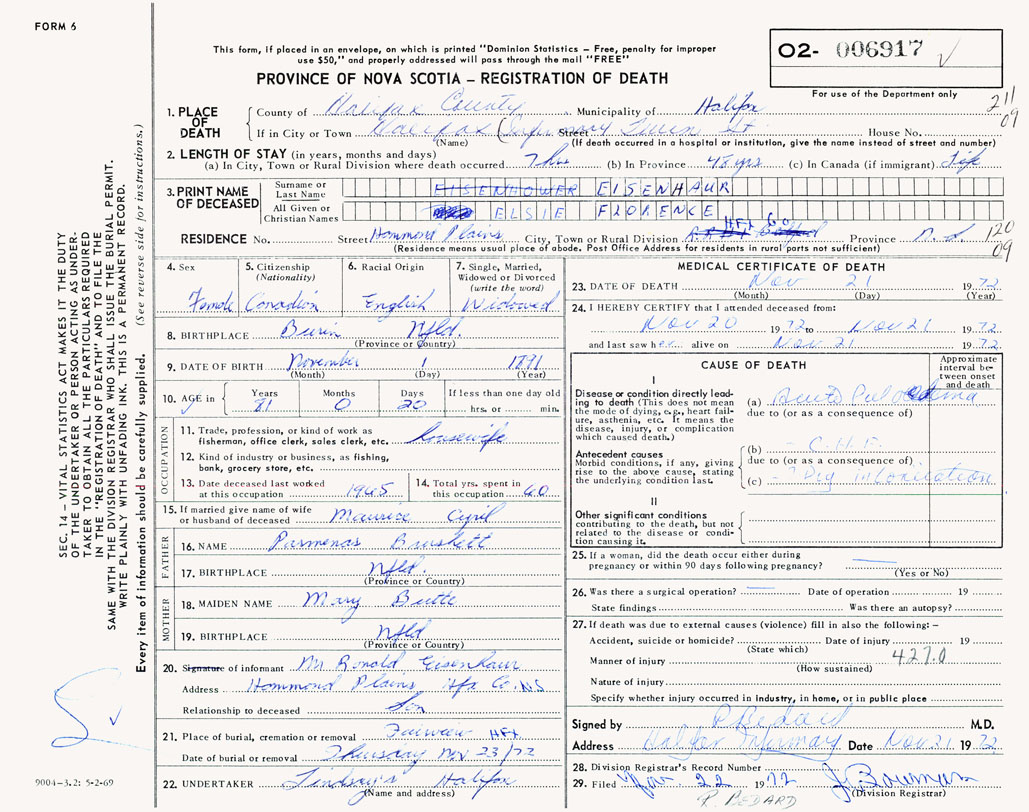 FORM 6
This form, if placed in an envelope, on which is printed "Dominion Statistics – Free, penalty for improper
use $50," and properly addressed will pass through the mail "FREE"
PROVINCE OF NOVA SCOTIA – REGISTRATION OF DEATH
O2- 006917
For use of the Department only
211
09
1. PLACE OF DEATH
County of Halifax County Municipality of Halifax
If in City or Town Halifax (Infirmary Queen St Street House No.
(Name) (If death occurred in a hospital or institution, give the name instead of street and number)
2. LENGTH OF STAY (in years, months and days)
(a) In City, Town or Rural Division where death occurred (b) In Province 48 yrs (c) In Canada (if immigrant) Life
3. PRINT NAME OF DECEASED
Surname or Last Name EISENHOWER EISENHAUR
All Given or Christian Names ELSIE FLORENCE
RESIDENCE No. Street Hammond Plains City, Town or Rural Division HFX Co Province N.S
(Residence means usual place of abode. Post Office Address for residents in rural parts not sufficient)
120
09
4. Sex Female
5. Citizenship (Nationality) Canadian
6. Racial Origin English
7. Single, Married, Widowed or Divorced (write the word) Widowed
8. BIRTHPLACE Burin Nfld.
(Province or Country)
9. DATE OF BIRTH November 1 1891
(Month) (Day) (Year)
10. AGE in Years 81 Months 0 Days 20 If less than one day old hrs. or min.
OCCUPATION
11. Trade, profession, or kind of work as fisherman, office clerk, sales clerk, etc. housewife
12. Kind of industry or business, as fishing, bank, grocery store, etc.
13. Date deceased last worked at this occupation 1965
14. Total yrs. spent in this occupation 60
15. If married give name of wife or husband of deceased Maurice Cyril
FATHER
16. NAME Parmenas
17. BIRTHPLACE Nfld.
(Province or Country)
MOTHER
18. MAIDEN NAME Mary
19. BIRTHPLACE Nfld
(Province or Country)
20. Signature of informant Mr Ronald Eisenhaur
Address Hammond Plains Hfx Co. N.S
Relationship to deceased Son
21. Place of burial, cremation or removal Fairview HFX
Date of burial or removal Thursday Nov 23/72
22. UNDERTAKER Lindsay's Halifax
(Name and address)
MEDICAL CERTIFICATE OF DEATH
23. DATE OF DEATH Nov 21 1972
(Month) (Day) (Year)
24. I HEREBY CERTIFY that I attended deceased from:
Nov 20 1972 to Nov 21 1972
and last saw her alive on Nov 21 1972
CAUSE OF DEATH
Approximate interval between onset and death
I
Disease or condition directly leading to death (This does not mean the mode of dying, e.g., heart failure, asthenia, etc. It means the disease, injury, or complication which caused death.)
(a) edema
due to (or as a consequence of)
Antecedent causes
Morbid conditions, if any, giving rise to the above cause, stating the underlying condition last.
(b) - C.H.F.
due to (or as a consequence of)
(c) - Dig intoxication
II
Other significant conditions contributing to the death, but not related to the disease or condition causing it.
25. If a woman, did the death occur either during pregnancy or within 90 days following pregnancy?
(Yes or No)
26. Was there a surgical operation? Date of operation 19
State findings Was there an autopsy?
27. If death was due to external causes (violence) fill in also the following: –
Accident, suicide or homicide? Date of injury 19
(State which)
Manner of injury 427.0
(How sustained)
Nature of injury
Specify whether injury occurred in industry, in home, or in public place
Signed by P Bedard M.D.
Address Halifax Infirmary Date Nov 21 1972
28. Division Registrar's Record Number
29. Filed Nov 22 1972 J. Bowman
(Division Registrar)
P. BEDARD
SEC. 14 – VITAL STATISTICS ACT MAKES IT THE DUTY
OF THE UNDERTAKER OR PERSON ACTING AS UNDER-
TAKER TO OBTAIN ALL THE PARTICULARS REQUIRED
IN THE "REGISTRATION OF DEATH" AND TO FILE THE
SAME WITH THE DIVISION REGISTRAR WHO SHALL ISSUE THE BURIAL PERMIT.
WRITE PLAINLY WITH UNFADING INK. THIS IS A PERMANENT RECORD.
Every item of information should be carefully supplied. (See reverse side for instructions.)
9004-3.2: 5-2-69